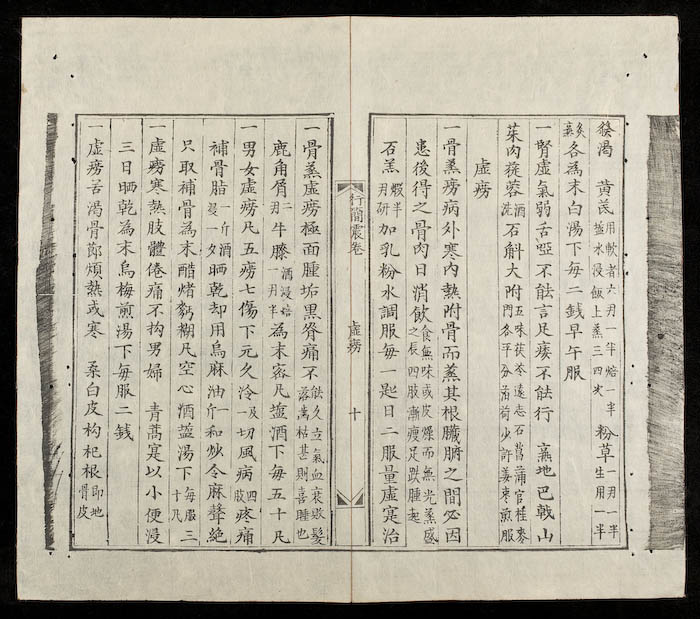 發渴　黃芪用軟者六刃一半焙一半鹽水浸飯上蒸三四次　粉草一刃一半生用一半
炙蒸各為末白湯下每二錢早午服
一腎虛氣弱舌啞不能言足痿不能行　熟地巴戟山
茱肉蓯蓉酒洗石斛大附五味茯苓遠志石菖蒲官桂麥門各平分薄荷少許姜棗煎服
虛癆
一骨蒸癆病外寒內熱附骨而蒸其根臟腑之間必因
患後得之骨肉日消飲食無味或皮燥而無光蒸盛之辰四肢漸瘦足趺腫起
石羔煆半刃研加乳粉水調服每一匙日二服量虛寔治
行簡震卷　虛癆　十
一骨蒸虛癆極面腫垢黑脊痛不能久立氣血衰敗髮落萬枯甚則喜睡也
鹿角屑二刃牛膝酒浸焙一刃半為末密凡鹽酒下每五十凡
一男女虛癆凡五癆七傷下元久冷及一切風病四肢疼痛
補骨脂一斤酒浸一夕晒乾却用烏麻油一斤和炒令麻聲絕
只取補骨為末醋煮麪糊凡空心酒鹽湯下每服三十凡
一虛癆寒熱肢體倦痛不拘男婦　青蒿寔以小便浸
三日晒乾為末烏梅煎湯下每服二錢
一虛癆苦渴骨節煩熱或寒　桑白皮枸杞根即地骨皮